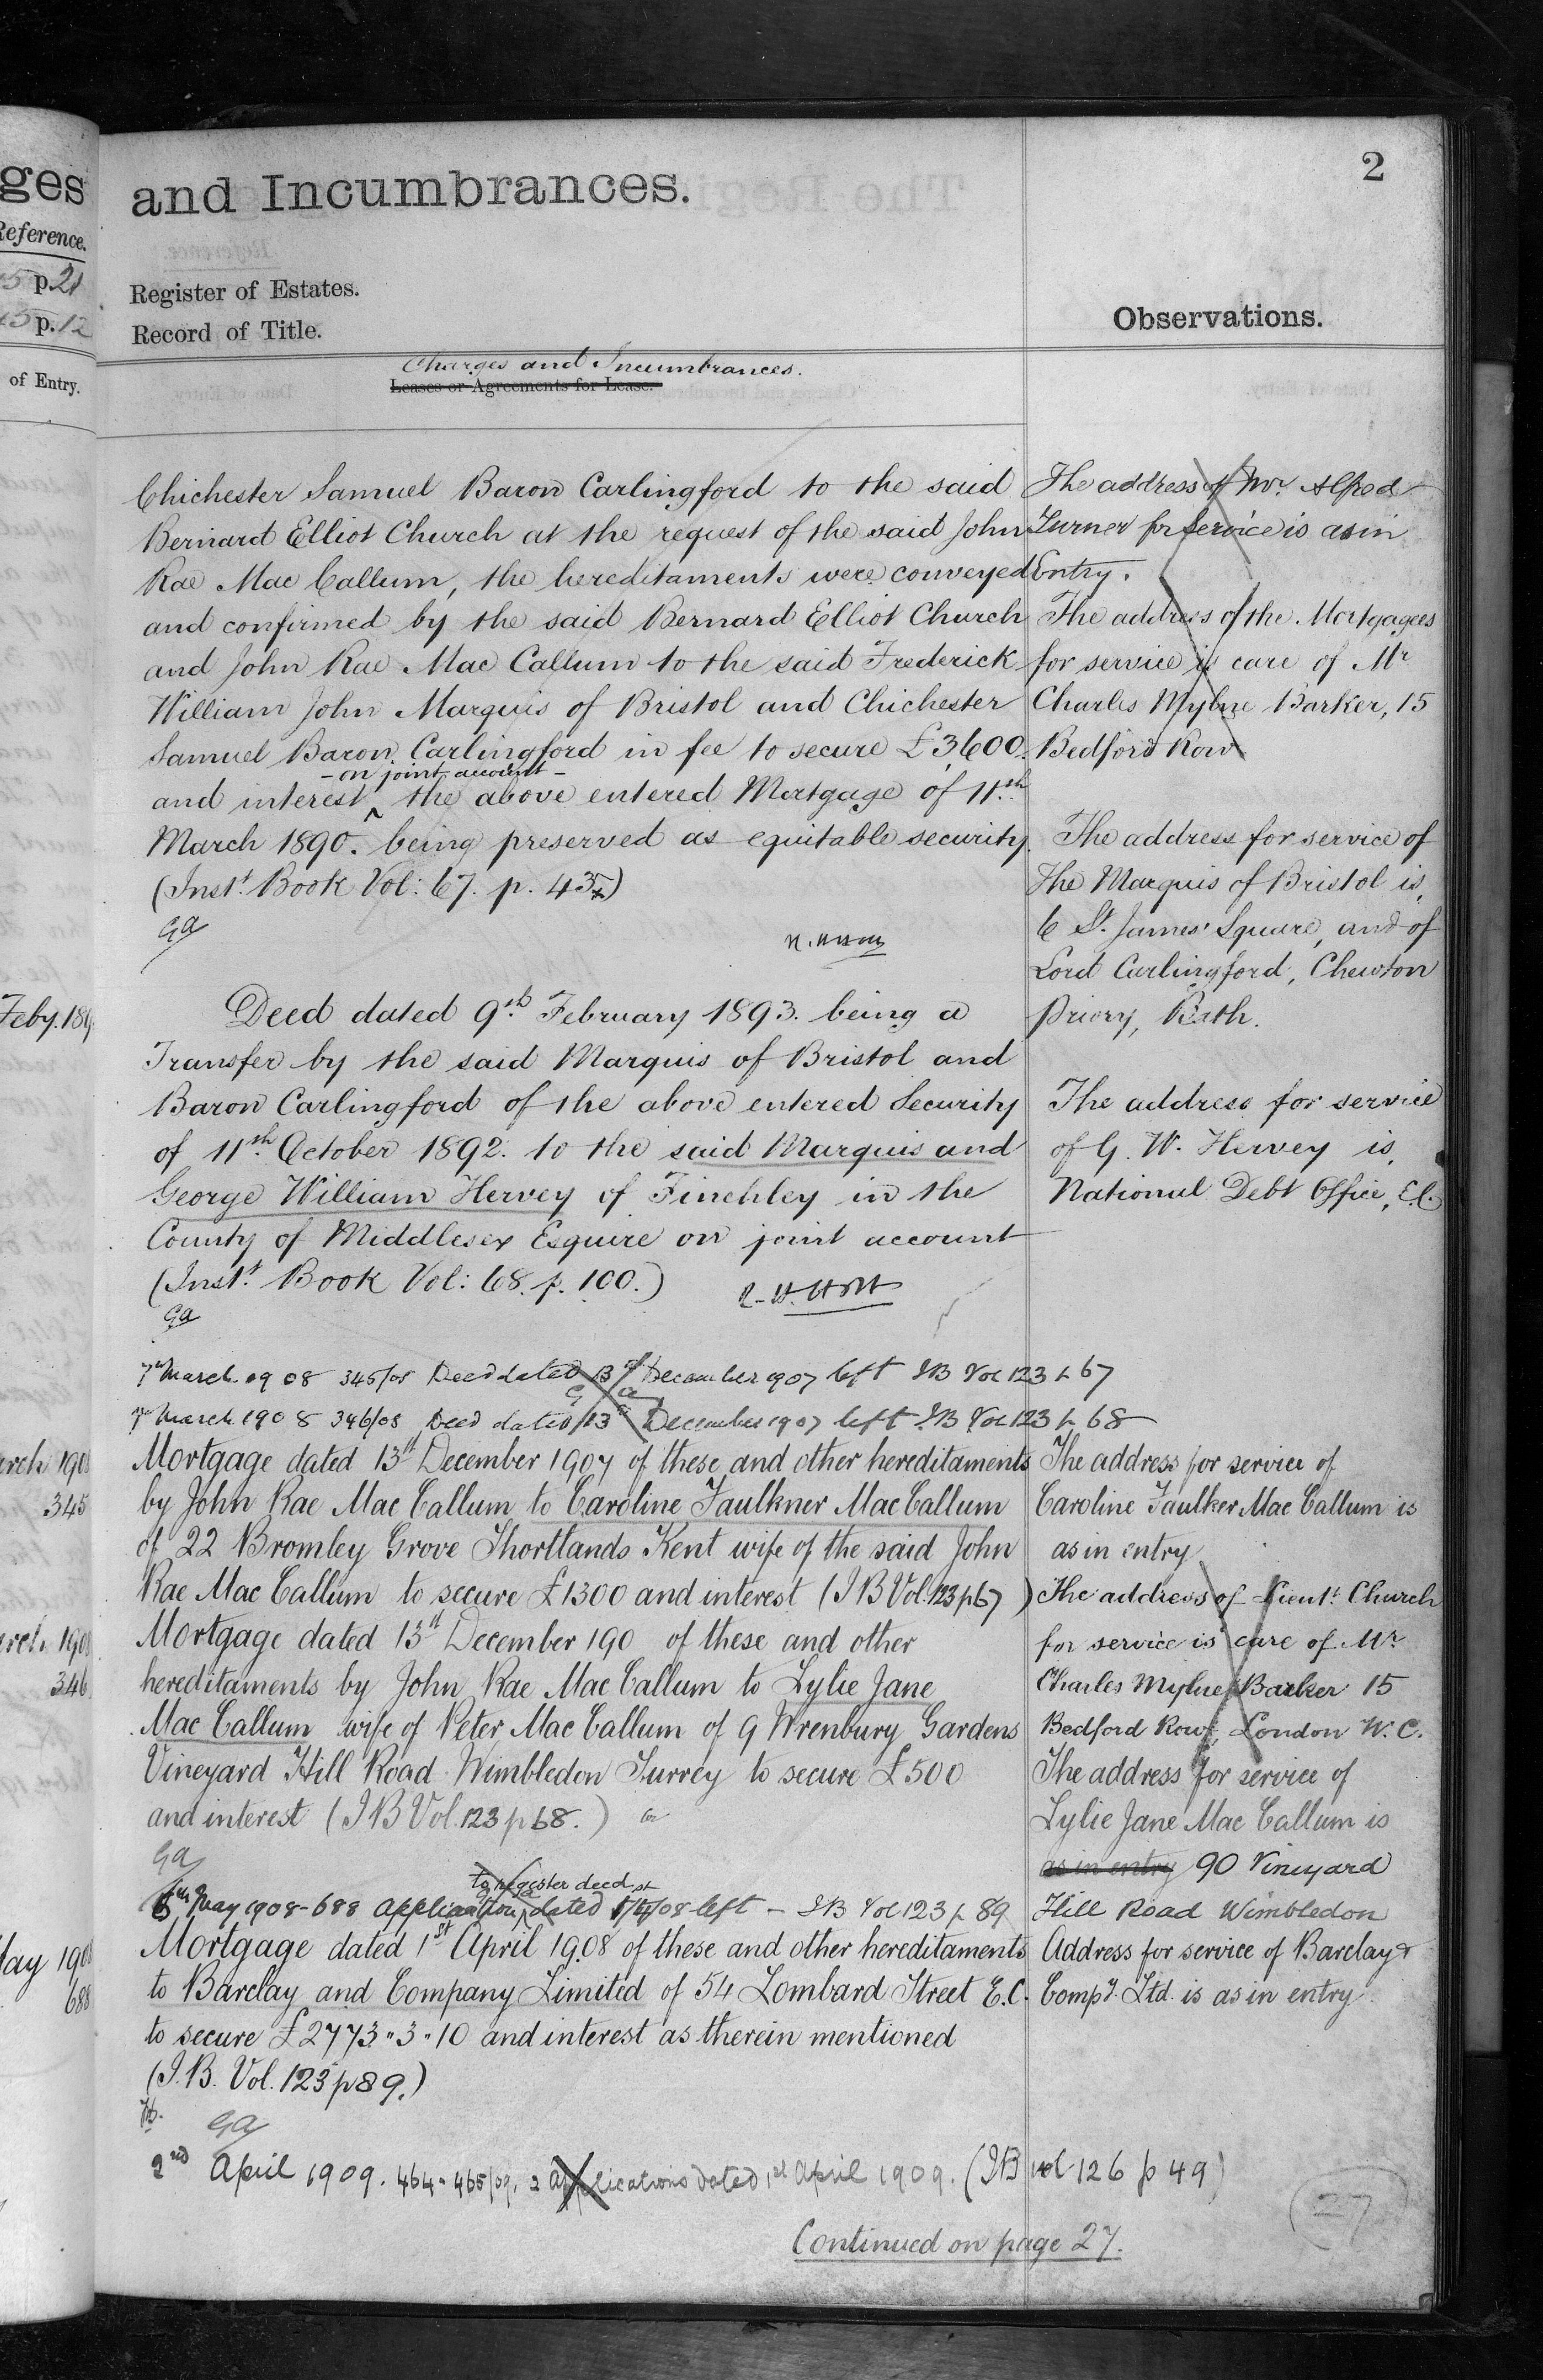 ges
Reference.
5 p. 21
45 p. 12
of Entry.
Feby. 189
arch 190
345
arch 190
346
May 190
688
and Incumbrances.
Register of Estates.
Record of Title.
Charges and Incumbrances.
Leases or Agreements for Lease.
Chichester Samuel Baron Carlingford to the said
Bernard Elliot Church at the request of the said John
Rae Mac Callum, the hereditaments were conveyed
and confirmed by the said Bernard Elliot Church
and John Rae Mac Callum to the said Frederick
William John Marquis of Bristol and Chichester
Samuel Baron Carlingford in fee to secure £3,600.
- on joint account -
and interest ^ the above entered Mortgage of 11th
March 1890. being preserved as equitable security.
(Inst. Book Vol: 67. p. 435)
GA
Deed dated 9th February 1893. being a
Transfer by the said Marquis of Bristol and
Baron Carlingford of the above entered Security
of 11th October 1892. to the said Marquis and
George William Hervey of Finchley in the
County of Middlesex Esquire on joint account
(Inst. Book Vol: 68. p. 100.)
GA
7th March 1908 345/08 Deed dated 13th December 1907 left IB Vol 123 p 67
GA
7th March 1908 346/08 Deed dated 13th December 1907 left IB Vol 123 p 68
Mortgage dated 13th December 1907 of these and other hereditaments
by John Rae Mac Callum to Caroline Faulkner Mac Callum
of 22 Bromley Grove Shortlands Kent wife of the said John
Rae Mac Callum to secure £1300 and interest (I B Vol. 123 p 67)
Mortgage dated 13th December 190 of these and other
hereditaments by John Rae Mac Callum to Lylie Jane
Mac Callum wife of Peter Mac Callum of 9 Wrenbury Gardens
Vineyard Hill Road Wimbledon Surrey to secure £500
and interest (I B Vol. 123 p 68.)
GA
to register deed
5th May 1908 - 688 application ^ dated 1st/4/08 left - IB Vol 123 p 89
Mortgage dated 1st April 1908 of these and other hereditaments
to Barclay and Company Limited of 54 Lombard Street E.C.
to secure £2773 " 3 " 10 and interest as therein mentioned
(I.B. Vol. 123 p 89.)
GA
2nd April 1909. 464 - 465/09. 2 applications dated 1st April 1909. (IB vol 126 p 49)
Continued on page 27.
2
Observations.
The address of Mr. Alfred
Turner for service is as in
Entry.
The address of the Mortgagees
for service is care of Mr
Charles Mylne Barker, 15
Bedford Row
The address for service of
The Marquis of Bristol is,
6 St. James' Square, and of
Lord Carlingford, Chewton
Priory, Bath.
The address for service
of G. W. Hervey is,
National Debt Office, E.C.
The address for service of
Caroline Faulker Mac Callum is
as in entry
The address of Lieut. Church
for service is care of Mr
Charles Mylne Barker 15
Bedford Row, London W.C.
The address for service of
Lylie Jane Mac Callum is
as in entry 90 Vineyard
Hill Road Wimbledon
Address for service of Barclay &
Compy. Ltd. is as in entry
27